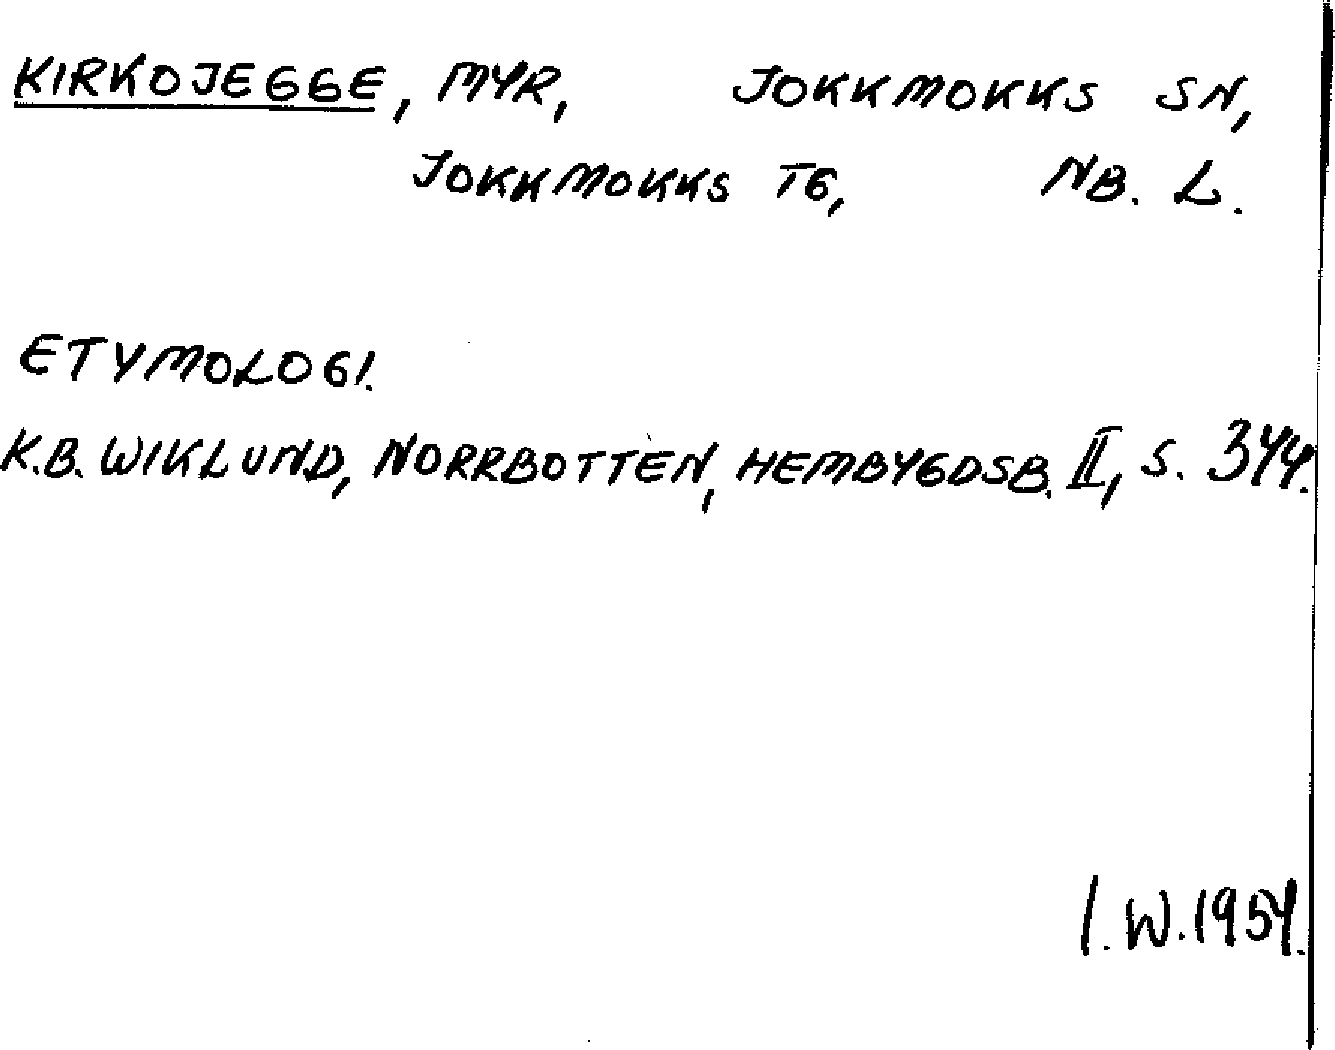 KIRKOJEGGE, MYR, JOKKMOKKS SN,
JOKKMOKKS TG, NB. L.
ETYMOLOGI.
K.B. WIKLUND, NORRBOTTEN, HEMBYGDSB. II, S. 344.
I. W. 1954.